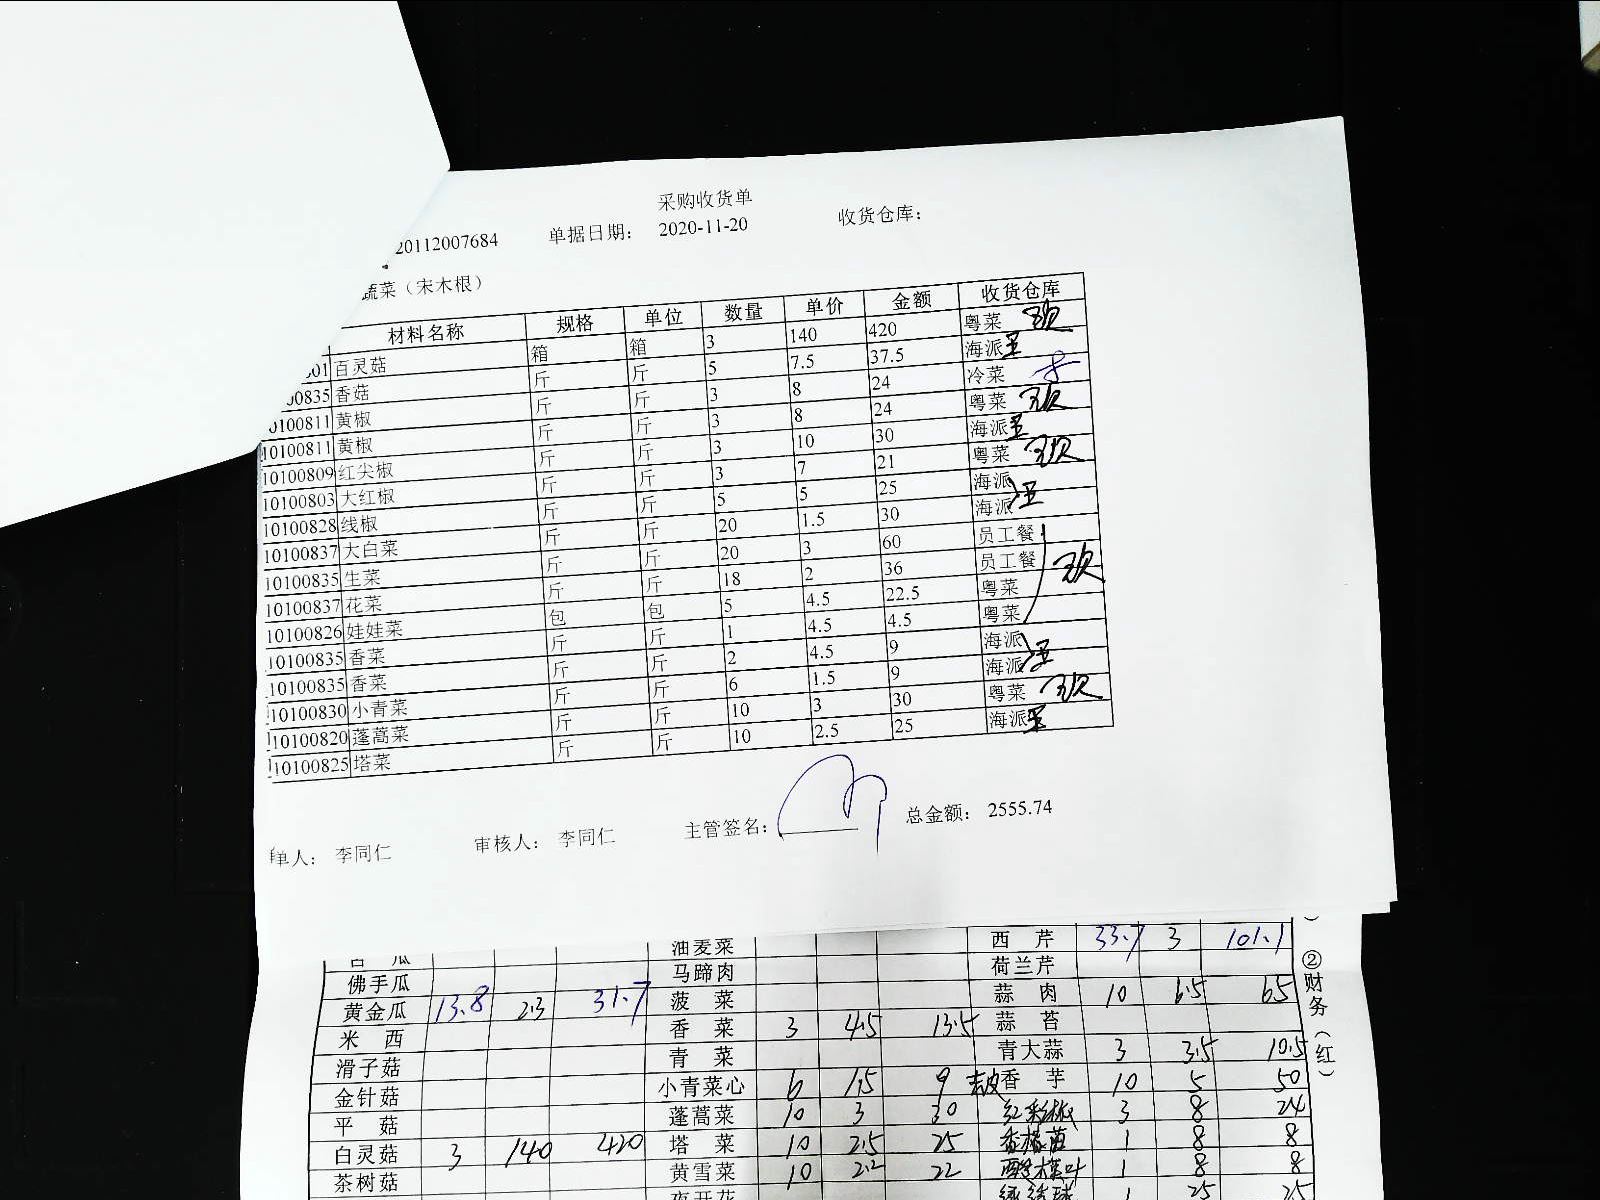 采购收货单
20112007684 单据日期： 2020-11-20 收货仓库：
蔬菜（宋木根）
材料名称 规格 单位 数量 单价 金额 收货仓库
01 百灵菇 箱 箱 3 140 420 粤菜
00835 香菇 斤 斤 5 7.5 37.5 海派
0100811 黄椒 斤 斤 3 8 24 冷菜
10100811 黄椒 斤 斤 3 8 24 粤菜
10100809 红尖椒 斤 斤 3 10 30 海派
10100803 大红椒 斤 斤 3 7 21 粤菜
10100828 线椒 斤 斤 5 5 25 海派
10100837 大白菜 斤 斤 20 1.5 30 海派
10100835 生菜 斤 斤 20 3 60 员工餐
10100837 花菜 斤 斤 18 2 36 员工餐
10100826 娃娃菜 包 包 5 4.5 22.5 粤菜
10100835 香菜 斤 斤 1 4.5 4.5 粤菜
10100835 香菜 斤 斤 2 4.5 9 海派
10100830 小青菜 斤 斤 6 1.5 9 海派
10100820 蓬蒿菜 斤 斤 10 3 30 粤菜
10100825 塔菜 斤 斤 10 2.5 25 海派
单人： 李同仁 审核人： 李同仁 主管签名： 总金额： 2555.74
油麦菜 西芹 33.7 3 101.1
佛手瓜 马蹄肉 荷兰芹
黄金瓜 13.8 2.3 31.7 菠菜 蒜肉 10 6.5 65
米西 香菜 3 4.5 13.5 蒜苔
滑子菇 青菜 青大蒜 3 3.5 10.5
金针菇 小青菜心 6 1.5 9 去皮香芋 10 5 50
平菇 蓬蒿菜 10 3 30 红彩椒 3 8 24
白灵菇 3 140 420 塔菜 10 2.5 25 1 8 8
茶树菇 黄雪菜 10 2.2 22 1 8 8
1 25 25
②财务（红）